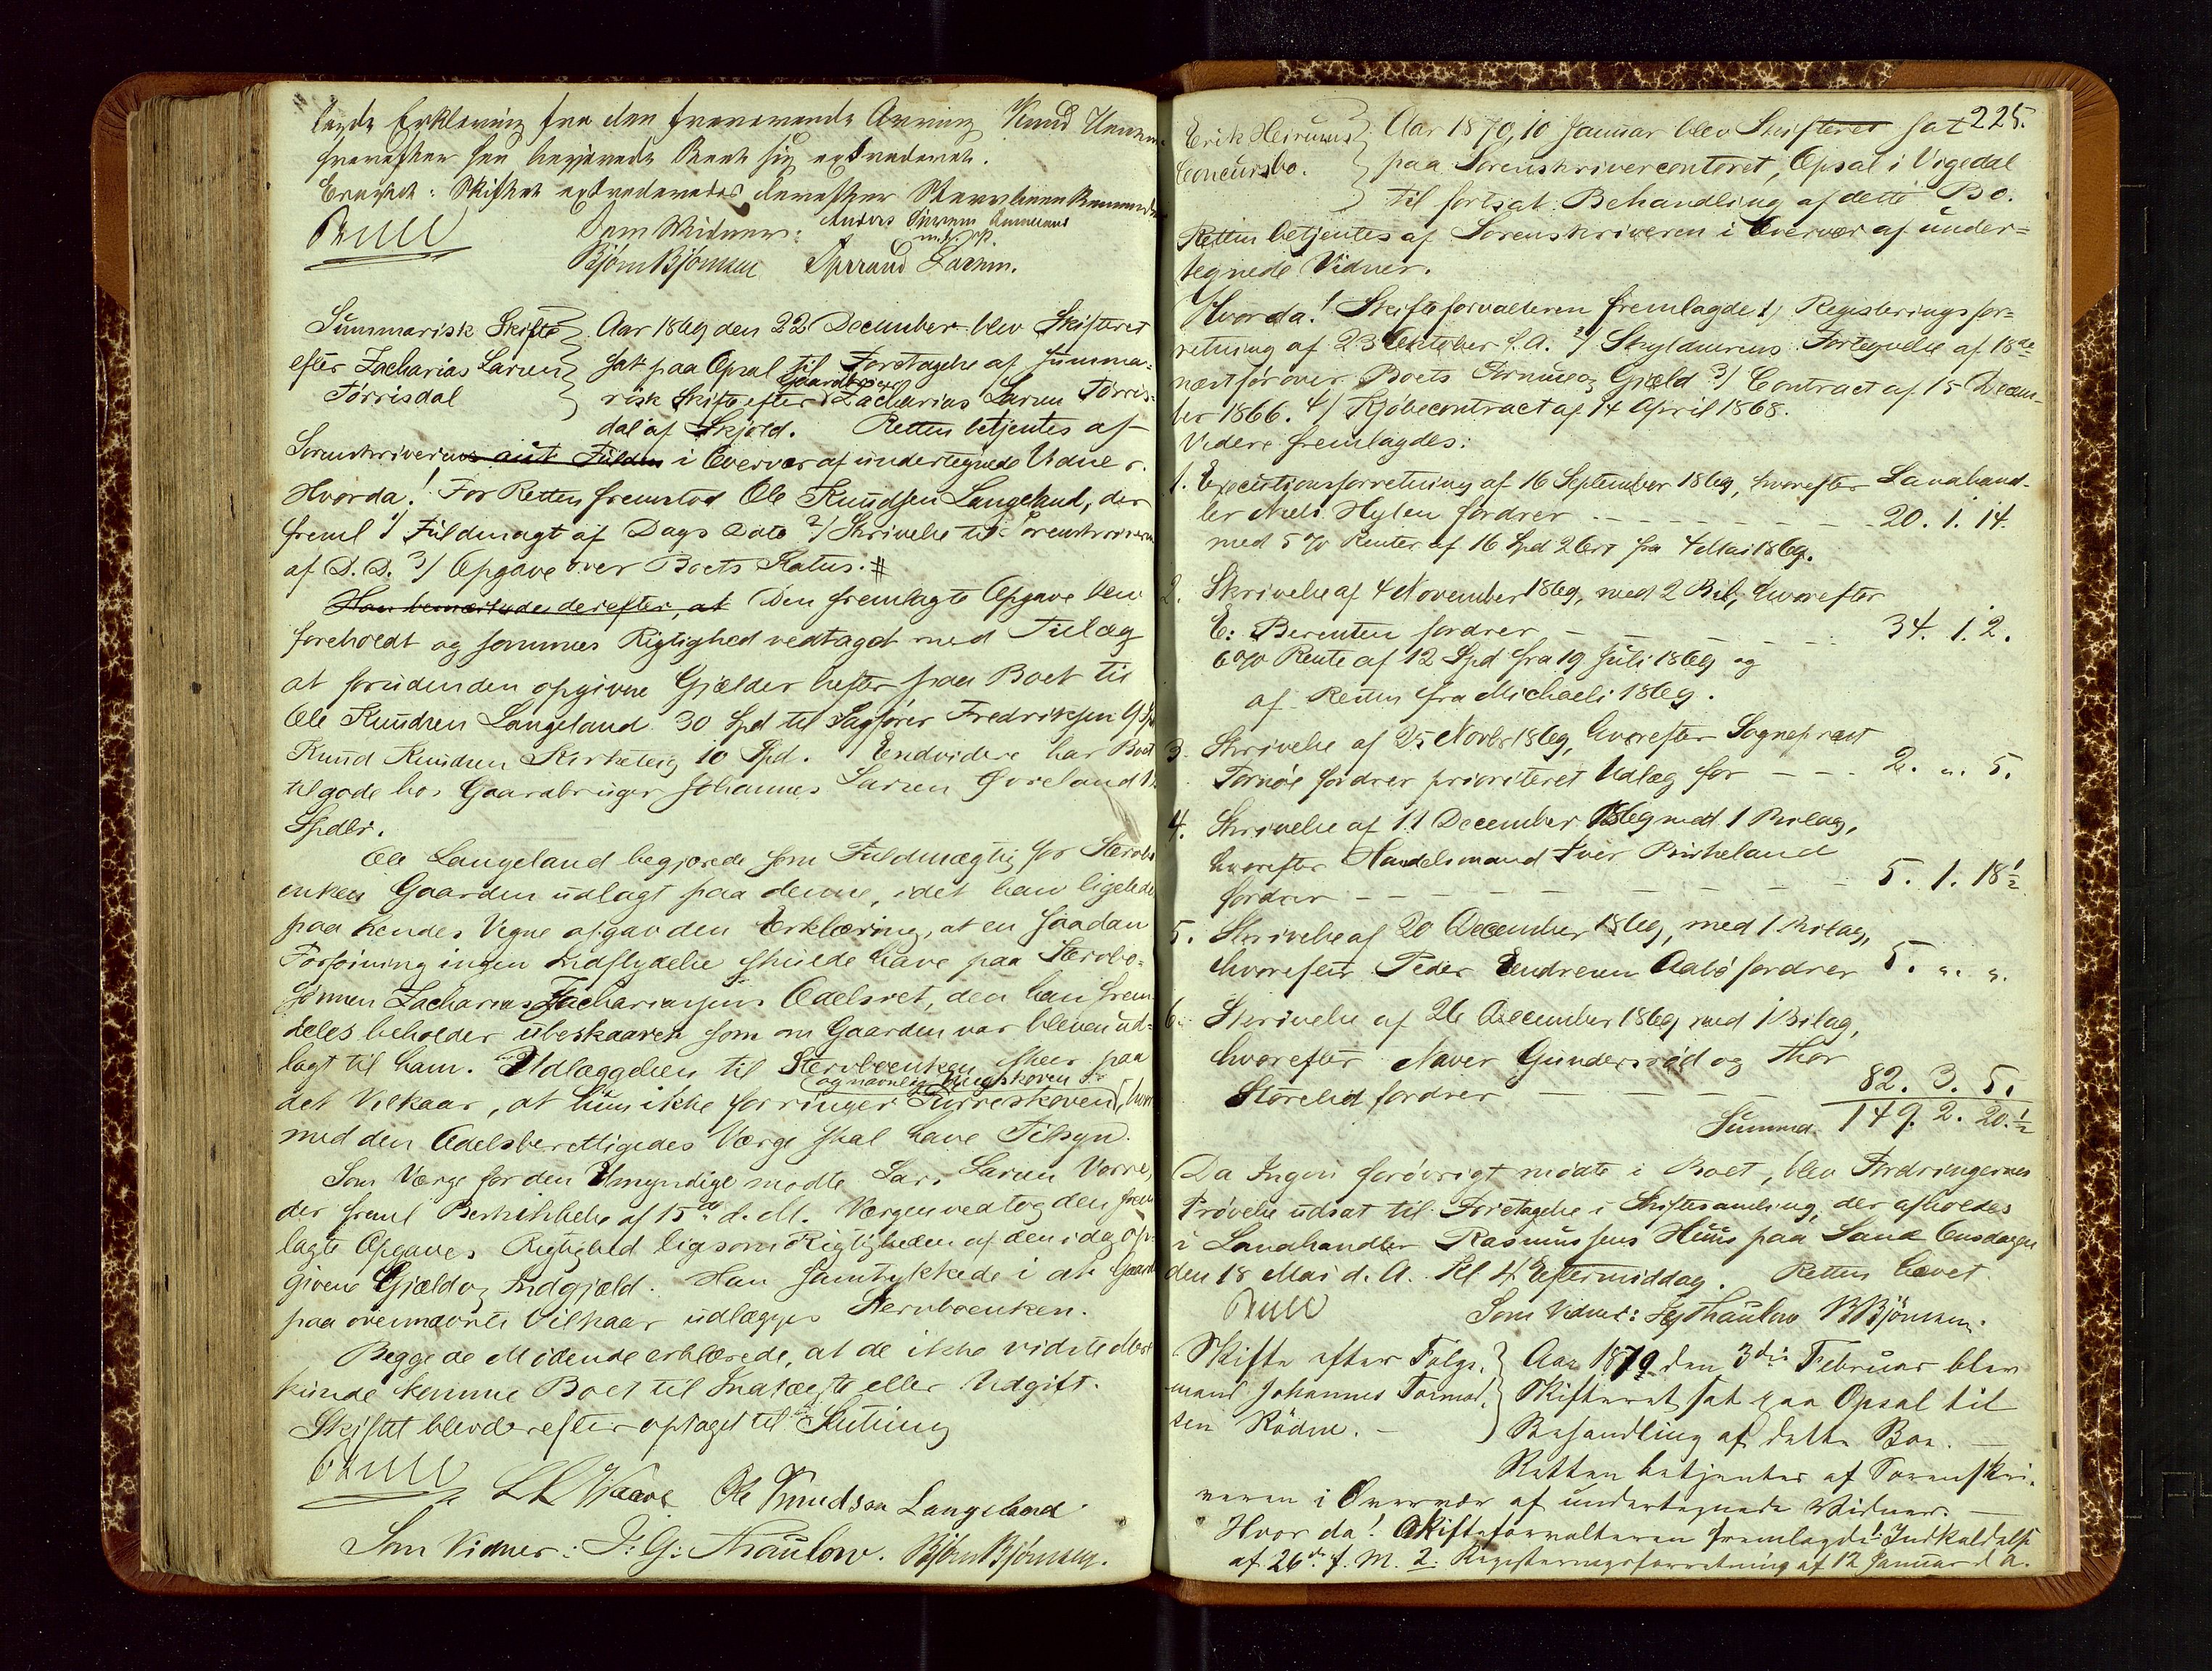 lagde Erklæring fra den fraværende Arving Knud
hvorefter han begjærede Boet sig extraderet.
Eragtet: Skiftet extraderedes derefter
Som Vidner:
m. f. P.
Bjørn Bjørnsen
Summarisk Skifte
efter Zacharias Larsen
Tørrisdal
Aar 1869 den 22 December blev Skifteret
sat paa Opsal til Foretagelse af summa-
risk Skifte efter Gaardbruger Zacharias Larsen Tørris-
dal af Skjold. Retten betjentes af
Sorenskriverens aut Fuldm i Overvær af undertegnede Vidner.
Hvorda! For Retten fremstod Ole Knudsen Langeland, der
freml 1/ Fuldmagt af Dags Dato 2/ Skrivelse til Sorenskriveren
af D. D. 3/ Opgave over Boets Status. #
Han bemærkede derefter, at Den fremlagte Opgave blev
foreholdt og sammes Rigtighed vedtaget med Tillæg
at foruden den opgivne Gjælder hefter paa Boet til
Ole Knudsen Langeland 30 Spd til Sagfører Fredriksen 9 Sp
Knud Knudsen Kirketeig 10 Spd. Endvidere har Boet
tilgode hos Gaardbruger Johannes Larsen
Spdlr.
Ole Langeland begjærede som Fuldmægtig for Stervbo
enken Gaarden udlagt paa denne, idet han ligeledes
paa hendes Vegne afgav den Erklæring, at en saadan
Forføining ingen Indflydelse skulde have paa Stervbo-
sønnen Zacharias Zachariassens Odelsret, den han frem-
deles beholder ubeskaaren som om Gaarden var bleven ud-
lagt til ham. Udlæggelsen til Stervboenken skeer paa
det Vilkaar, at hun ikke forringer Furreskoven og navnlig Ungskoven, hvor
med den Odelsberettigedes Værge skal have Tilsyn.
Som Værge for den Umyndige mødte Lars Larsen Vaare,
der freml Beskikkelse af 15de d. M. Værgen vedtog den frem
lagte Opgaves Rigtighed ligesom Rigtigheden af den idag op-
givne Gjæld og Indgjæld. Han samtykkede i at Gaard
paa ovennævnte Vilkaar udlægges Stervboenken.
Begge de Mødende erklærede, at de ikke vidste Mere
kunde komme Boet til Indtægt eller Udgift.
Skiftet blev derefter optaget til Slutning
L L Waare Ole Knudsen Langeland
Som Vidner: J: G: Thaulow. Bjørn Bjørnsen.
225.
Erik Heirums
Concursbo.
Aar 1870, 10 Januar blev Skifteret sat
paa Sorenskrivercontoret, Opsal i Vigedal
til fortsat Behandling af dette Bo.
Retten betjentes af Sorenskriveren i Overvær af under-
tegnede Vidner.
Hvorda! Skifteforvalteren fremlagde 1/ Registeringsfor-
retning af 23 Oktober f. A. 2/ Skyldnerens Fortegnelse af 18de
næstfør over Boets Formue og Gjæld 3/ Contract af 15 Decem-
ber 1866. 4/ Kjøbecontract af 14 April 1868.
Videre fremlagdes:
1. Executionsforretning af 16 September 1869, hvorefter Landhand-
ler Niels Hylen fordrer - - - 20. 1. 14.
med 5 % Renter af 16 Spd 2 Ort fra 4 Mai 1869.
2. Skrivelse af 4 November 1869, med 2 Bil, hvorefter
E: Berentsen fordrer - - - 34. 1. 2.
6 % Rente af 12 Spd fra 19 Juli 1869 og
af Resten fra Michaeli 1869.
3. Skrivelse af 25 Novbr 1869, hvorefter Sognepræst
Tornøe fordrer prioriteret Udlæg for - - - 2. " 5.
4. Skrivelse af 11 December 1869 med 1 Bilag,
hvorefter Handelsmand Iver Birkeland
fordrer - - - 5. 1. 18½
5. Skrivelse af 20 December 1869, med 1 Bilag,
hvorefter Peder Endresen Aabø fordrer 5. " "
6. Skrivelse af 26 December 1869 med 1 Bilag,
hvorefter Gundersrød og Thor
Størelid fordrer - - - 82. 3. 5.
Summa 149. 2. 20.½
Da Ingen forøvrigt mødte i Boet, blev Fordringernes
Prøvelse udsat til Foretagelse i Skiftesamling, der afholdes
i Landhandler Rasmussens Huus paa Sand Onsdagen
den 18 Mai d. A. Kl 4 Eftermiddag. Retten hævet.
Som Vidner: JGThaulow BBjørnsen.
Skifte efter Følge-
mand Johannes Tormod-
sen Rødne. -
Aar 1870 den 3die Februar blev
Skifteret sat paa Opsal til
Behandling af dette Bo. -
Retten betjentes af Sorenskri-
veren i Overvær af undertegnede Vidner. -
Hvorda! Skifteforvalteren fremlagde 1: Indkaldelse
af 26de f. M. 2: Registeringsforretning af 12 Januar d A.